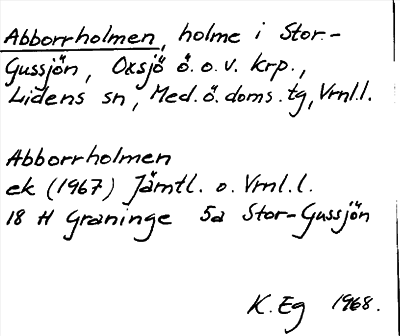 Abborrholmen, holme i Stor-
Gussjön, Oxsjö ö.o.v. krp.,
Lidens sn, Med.ö.doms.tg, Vrnl.l.
Abborrholmen
ek (1967) Jämtl. o. Vrnl.l.
18 H Graninge 5a Stor-Gussjön
K.Eg 1968.